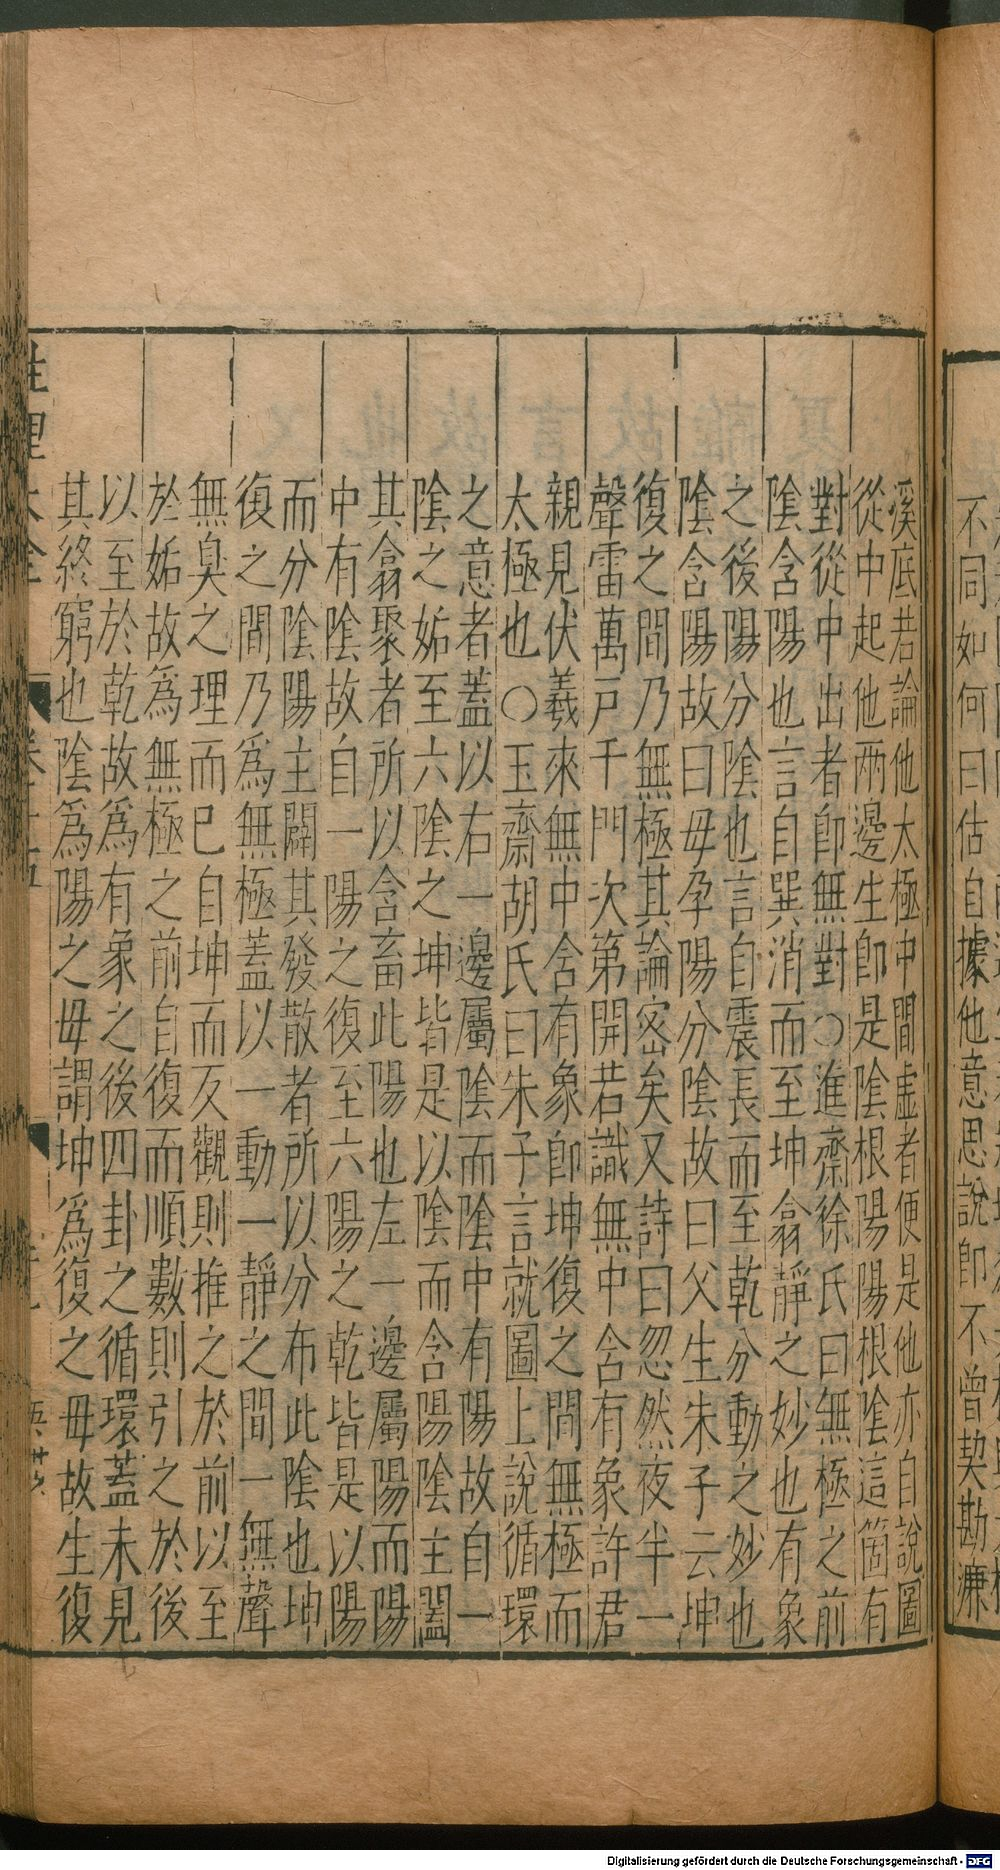 不同如何曰估自據他意思說即不曾契勘濂
溪底若論他太極中間虛者便是他亦自說圖
從中起他两邊生即是陰根陽陽根陰這箇有
對從中出者即無對○進齋徐氏曰無極之前
陰含陽也言自巽消而至坤翕靜之妙也有象
之後陽分陰也言自震長而至乾分動之妙也
陰含陽故曰毋孕陽分陰故曰父生朱子云坤
復之間乃無極其論宻矣又詩曰忽然夜半一
聲雷萬戶千門次第開若識無中含有象許君
親見伏羲來無中含有象即坤復之間無極而
太極也○玉齋胡氏曰朱子言就圖上說循環
之意者蓋以右一邊屬陰而陰中有陽故自一
陰之姤至六陰之坤皆是以陰而含陽陰主闔
其翕聚者所以含畜此陽也左一邊屬陽而陽
中有陰故自一陽之復至六陽之乾皆是以陽
而分陰陽主闢其發散者所以分布此陰也坤
復之間乃爲無極蓋以一動一靜之間一無聲
無臭之理而已自坤而反觀則推之於前以至
於姤故爲無極之前自復而順數則引之於後
以至於乾故爲有象之後四卦之循環蓋未見
其終窮也陰爲陽之毋謂坤爲復之毋故生復
性理大全
Digitalisierung gefördert durch die Deutsche Forschungsgemeinschaft - DFG